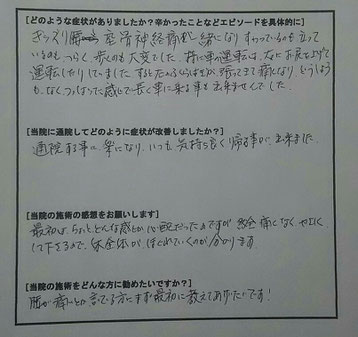 【どのような症状がありましたか？辛かったことなどエピソードを具体的に】
ぎっくり腰 坐骨神経痛が一緒になり すわっているのも立って
いるのも、つらく、歩くのも大変でした。特に車の運転は、
運転したりしていました。
も、なく、つっぱった感じで長く車に乗る事も出来ませんでした。
【当院に通院してどのように症状が改善しましたか？】
通院する事に、楽になり、いつも気持ち良く帰る事が、出来ました。
【当院の施術の感想をお願いします】
最初は、ちょっとどんな感じか心配だったのですが 全然痛くなく、やさしく
して下さるので、体全体が、ほぐれていくのが分かります。
【当院の施術をどんな方に勧めたいですか？】
腰が痛いとか言ってる方にまず最初に教えてあげたいです！